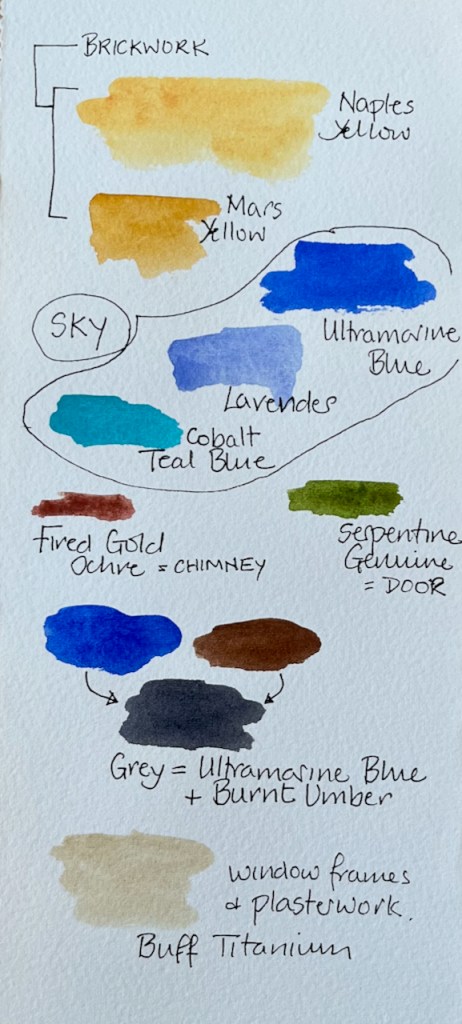 BRICKWORK
Naples
Yellow
Mars
Yellow
SKY
Ultramarine
Blue
Lavender
Cobalt
Teal Blue
Fired Gold
Ochre = CHIMNEY
Serpentine
Genuine
= DOOR
Grey = Ultramarine Blue
+ Burnt Umber
window frames
& plasterwork.
Buff Titanium